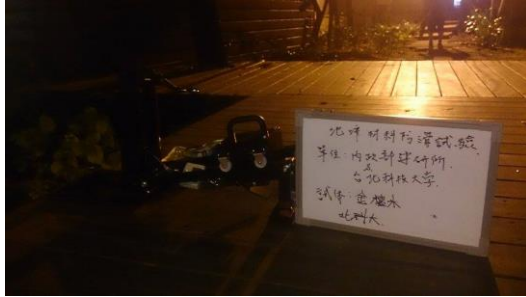 地坪材料防滑試驗
單位：內政部建研所
&
台北科技大學
試体：密檀木
北科大